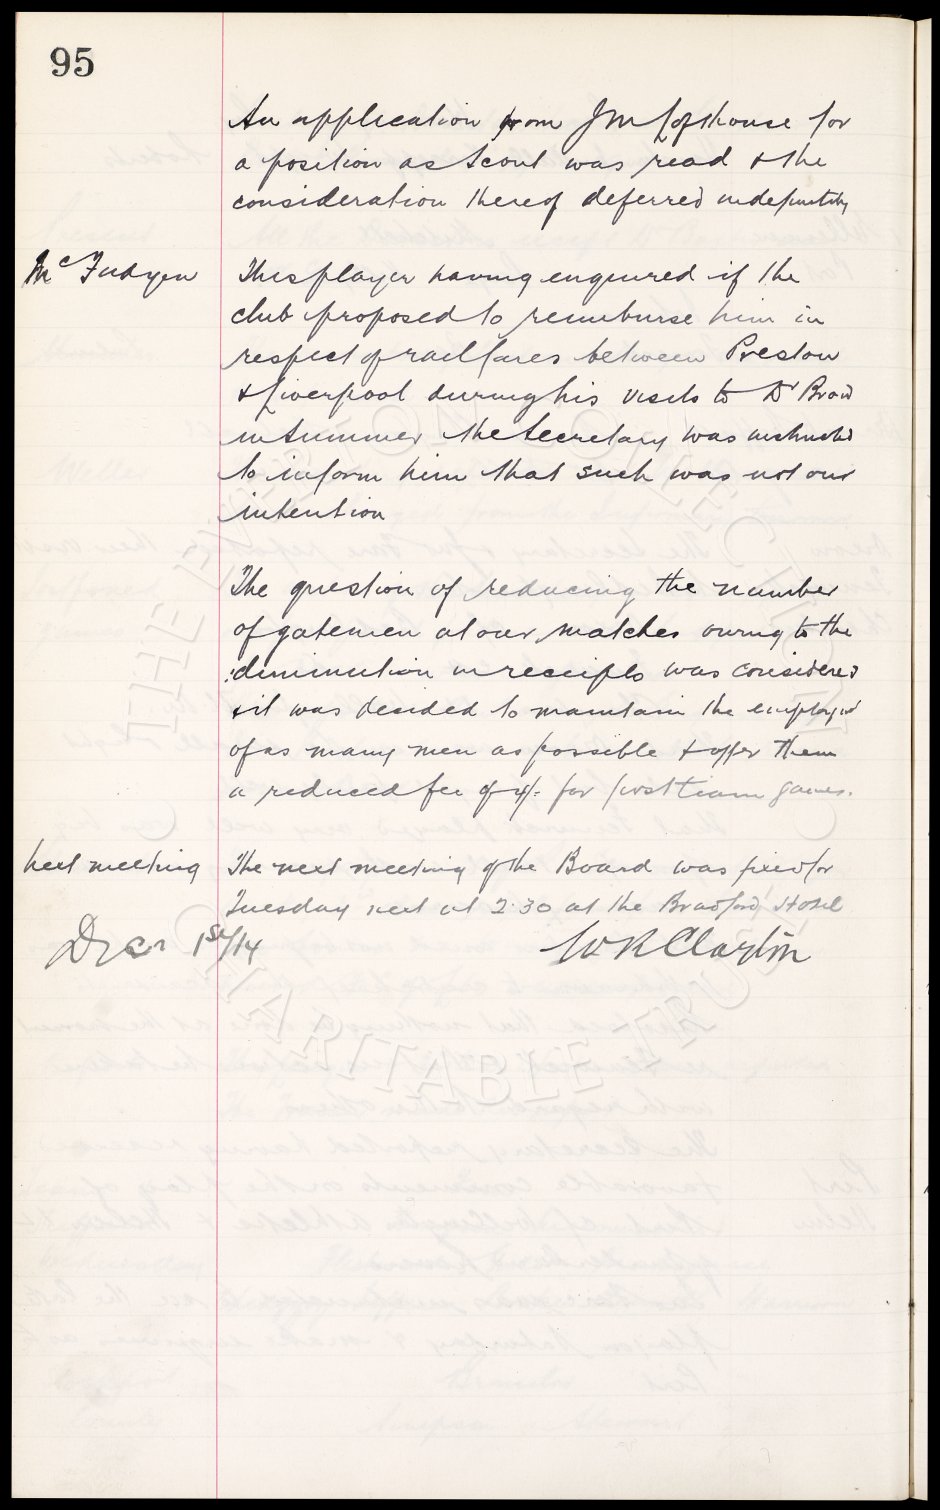 95
An application from J M Lofthouse for
a position as Scout was read & the
consideration thereof deferred indefinitely
McFadyen This player having enquired if the
club proposed to reimburse him in
respect of rail fares between Preston
& Liverpool during his visits to Dr Brow
in Summer the Secretary was instructed
to inform him that such was not our
intention
The question of reducing the number
of gatemen at our matches owing to the
diminution in receipts was considered
& it was decided to maintain the employmt
of as many men as possible & offer them
a reduced fee of 4/- for first team games.
Next meeting The next meeting of the Board was fixed for
Tuesday next at 2.30 at the Bradford Hotel
Decr 1st/14 W R Clayton
THE EVERTON COLLECTION
CHARITABLE TRUST